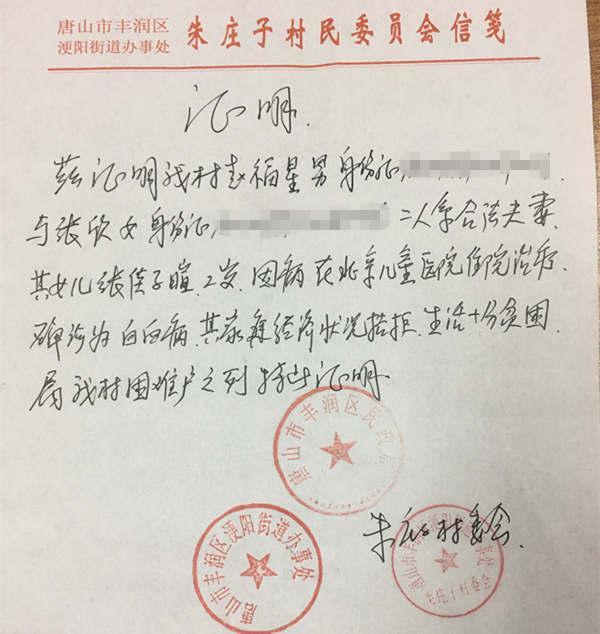 唐山市丰润区
浭阳街道办事处
朱庄子村民委员会信笺
证明.
兹证明我村赵福星男身份证
与张欣女身份证 二人系合法夫妻
其女儿张侯子暄.2岁.因病在北京儿童医院住院治疗.
确诊为白血病.其家庭经济状况拮拒.生活十分贫困.
属我村困难户之列特此证明.
唐山市丰润区民政局
朱庄子村委会.
唐山市丰润区浭阳街道办事处
唐山市丰润区浭阳街道办事处
朱庄子村委会